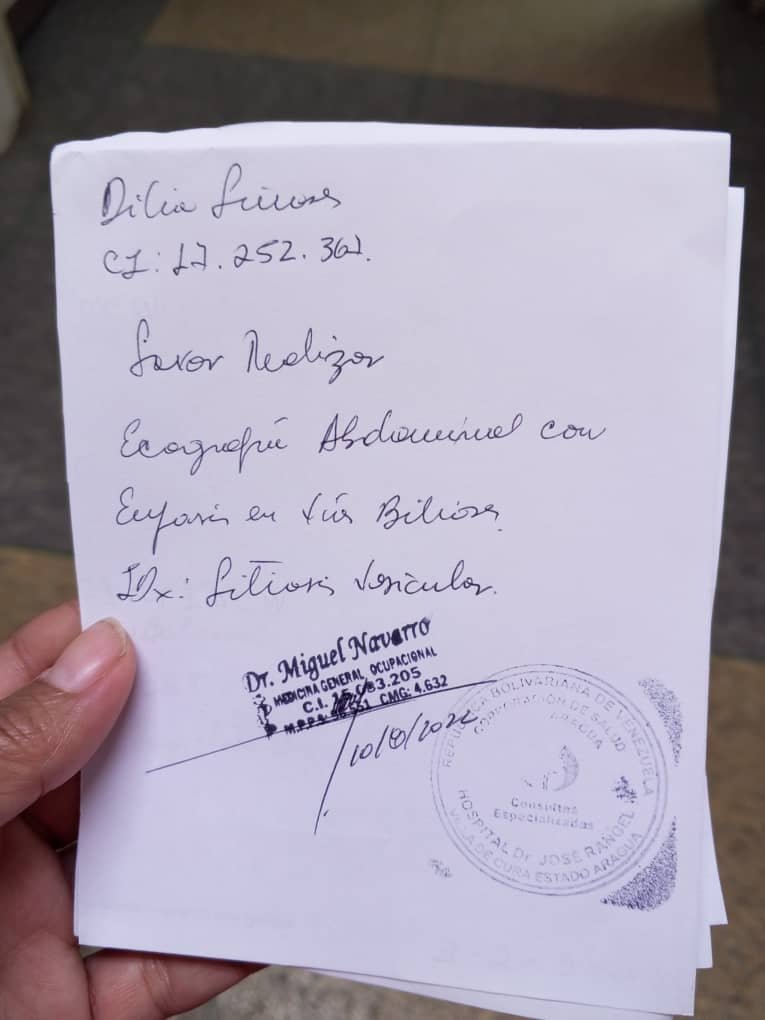 Dilia
CI: 17.252.367.
Favor Realizar
Ecografía Abdominal con
Enfasis en Vías Biliares
IDx: Litiasis Vesicular.
Dr. Miguel Navarro
MEDICINA GENERAL OCUPACIONAL
C.I. 083.205
M.P.P.S. CMG: 4.632
10/ /2022
REPUBLICA BOLIVARIANA DE VENEZUELA
CORPORACIÓN DE SALUD
ARAGUA
Consultas
Especializadas
HOSPITAL Dr. JOSE RANGEL
VILLA DE CURA ESTADO ARAGUA